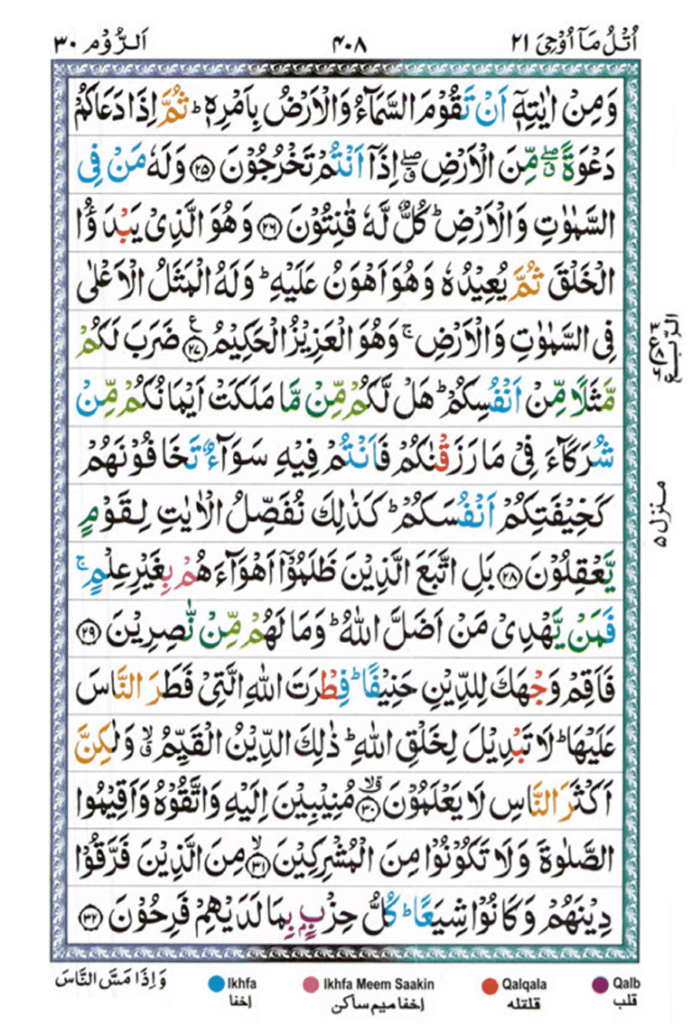 اُتْلُ مَآ اُوْحِیَ ۲۱ ۴۰۸ اَلرُّوْم ۳۰
وَمِنْ اٰيٰتِهٖۤ اَنْ تَقُوْمَ السَّمَآءُ وَالْاَرْضُ بِاَمْرِهٖ ؕ ثُمَّ اِذَا دَعَاكُمْ
دَعْوَةً ۖ مِّنَ الْاَرْضِ ۖ اِذَاۤ اَنْتُمْ تَخْرُجُوْنَ ﴿۲۵﴾ وَلَهٗ مَنْ فِى
السَّمٰوٰتِ وَالْاَرْضِ ؕ كُلٌّ لَّهٗ قٰنِتُوْنَ ﴿۲۶﴾ وَهُوَ الَّذِىْ يَبْدَؤُا
الْخَلْقَ ثُمَّ يُعِيْدُهٗ وَهُوَ اَهْوَنُ عَلَيْهِ ؕ وَلَهُ الْمَثَلُ الْاَعْلٰى
فِى السَّمٰوٰتِ وَالْاَرْضِ ۚ وَهُوَ الْعَزِيْزُ الْحَكِيْمُ ﴿۲۷﴾ ضَرَبَ لَكُمْ
مَّثَلًا مِّنْ اَنْفُسِكُمْ ؕ هَلْ لَّكُمْ مِّنْ مَّا مَلَكَتْ اَيْمَانُكُمْ مِّنْ
شُرَكَآءَ فِىْ مَا رَزَقْنٰكُمْ فَاَنْتُمْ فِيْهِ سَوَآءٌ تَخَافُوْنَهُمْ
كَخِيْفَتِكُمْ اَنْفُسَكُمْ ؕ كَذٰلِكَ نُفَصِّلُ الْاٰيٰتِ لِقَوْمٍ
يَّعْقِلُوْنَ ﴿۲۸﴾ بَلِ اتَّبَعَ الَّذِيْنَ ظَلَمُوْۤا اَهْوَآءَهُمْ بِغَيْرِ عِلْمٍ ۚ
فَمَنْ يَّهْدِىْ مَنْ اَضَلَّ اللّٰهُ ؕ وَمَا لَهُمْ مِّنْ نّٰصِرِيْنَ ﴿۲۹﴾
فَاَقِمْ وَجْهَكَ لِلدِّيْنِ حَنِيْفًا ؕ فِطْرَتَ اللّٰهِ الَّتِىْ فَطَرَ النَّاسَ
عَلَيْهَا ؕ لَا تَبْدِيْلَ لِخَلْقِ اللّٰهِ ؕ ذٰلِكَ الدِّيْنُ الْقَيِّمُ ۙ وَلٰكِنَّ
اَكْثَرَ النَّاسِ لَا يَعْلَمُوْنَ ﴿۳۰﴾ مُنِيْبِيْنَ اِلَيْهِ وَاتَّقُوْهُ وَاَقِيْمُوا
الصَّلٰوةَ وَلَا تَكُوْنُوْا مِنَ الْمُشْرِكِيْنَ ﴿۳۱﴾ مِنَ الَّذِيْنَ فَرَّقُوْا
دِيْنَهُمْ وَكَانُوْا شِيَعًا ؕ كُلُّ حِزْبٍۭ بِمَا لَدَيْهِمْ فَرِحُوْنَ ﴿۳۲﴾
منزل ۵
وَاِذَا مَسَّ النَّاسَ
Ikhfa Ikhfa Meem Saakin Qalqala Qalb
اخفا اخفا میم ساکن قلقله قلب